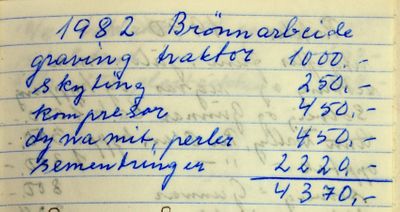 1982 Brönnarbeide
graving traktor 1000,-
skyting 250,-
kompresor 450,-
dynamit, perler 450,-
sementringer 2220,-
4370,-